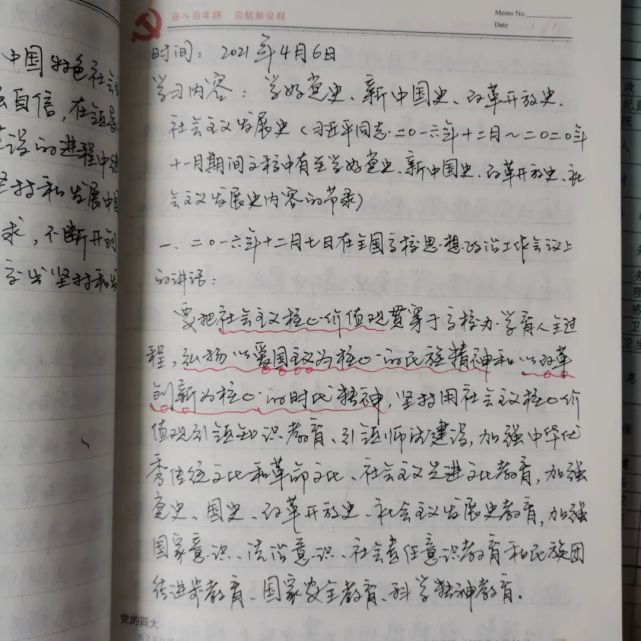 奋斗百年路 启航新征程
Memo No.
Date
时间：2021年4月6日
学习内容：学好党史、新中国史、改革开放史、
社会主义发展史（习近平同志二〇一六年十二月～二〇二〇年
十一月期间文稿中有关学好党史、新中国史、改革开放史、社
会主义发展史内容的节录）
一、二〇一六年十二月七日在全国高校思想政治工作会议上
的讲话：
要把社会主义核心价值观贯穿于高校办学育人全过
程，弘扬以爱国主义为核心的民族精神和以改革
创新为核心的时代精神，坚持用社会主义核心价
值观引领知识教育、引领师德建设，加强中华优
秀传统文化和革命文化、社会主义先进文化教育，加强
党史、国史、改革开放史、社会主义发展史教育，加强
国家意识、法治意识、社会责任意识教育和民族团
结进步教育、国家安全教育、科学精神教育．
党的四大
中国特色社会
自信，在领导
的进程中
坚持和发展中国
求，不断开创
坚持和